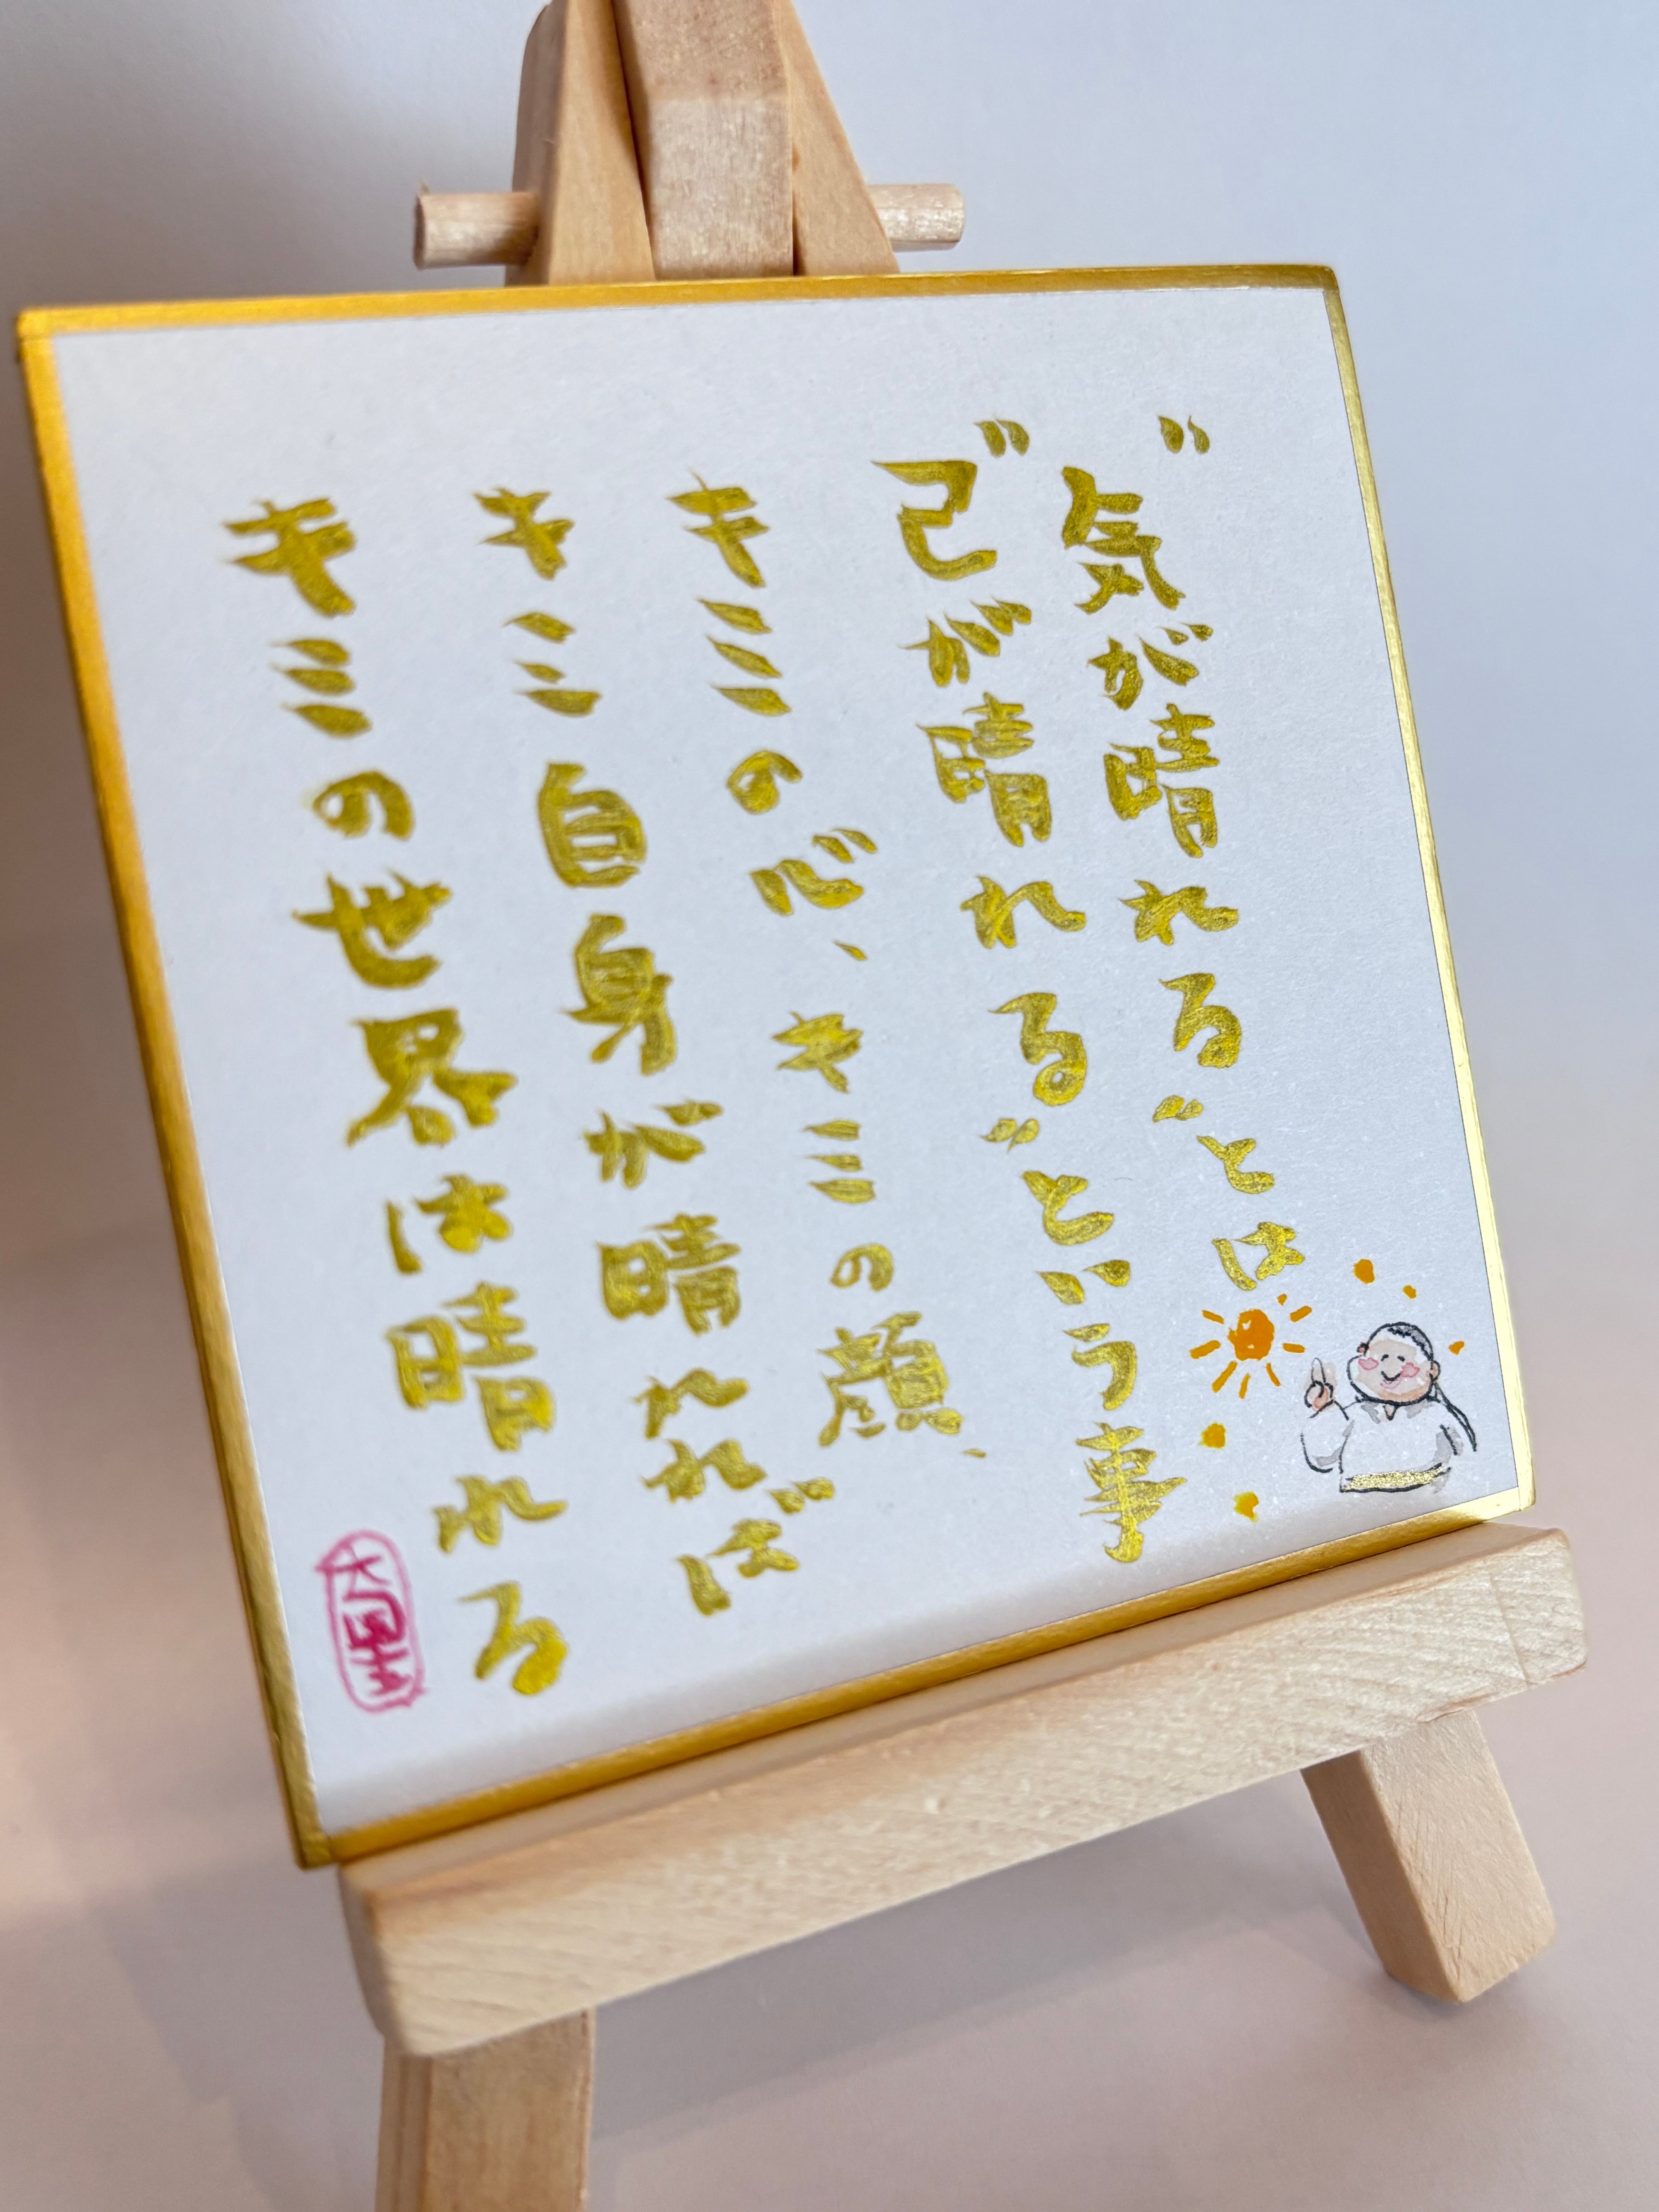 "気が晴れる"とは
"己が晴れる"という事
キミの心、キミの顔、
キミ自身が晴れれば
キミの世界は晴れる